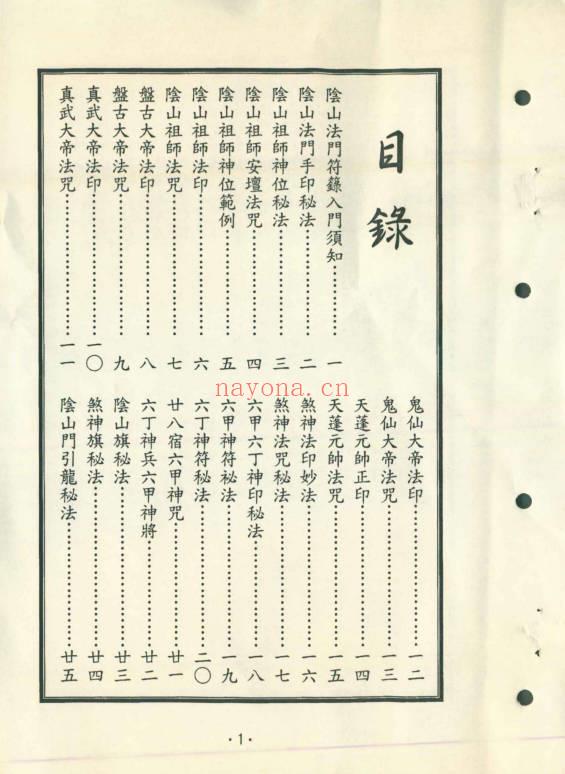 目錄
陰山法門符籙入門須知…………一
陰山法門手印秘法…………二
陰山祖師神位秘法…………三
陰山祖師安壇法咒…………四
陰山祖師神位範例…………五
陰山祖師法印…………六
陰山祖師法咒…………七
盤古大帝法印…………八
盤古大帝法咒…………九
真武大帝法印…………一〇
真武大帝法咒…………一一
鬼仙大帝法印…………一二
鬼仙大帝法咒…………一三
天蓬元帥正印…………一四
天蓬元帥法咒…………一五
煞神法印妙法…………一六
煞神法咒秘法…………一七
六甲六丁神印秘法…………一八
六甲神符祕法…………一九
六丁神符秘法…………二〇
廿八宿六甲神咒…………廿一
六丁神兵六甲神將…………廿二
陰山旗秘法…………廿三
煞神旗秘法…………廿四
陰山門引龍秘法…………廿五
nayona.cn
·1·